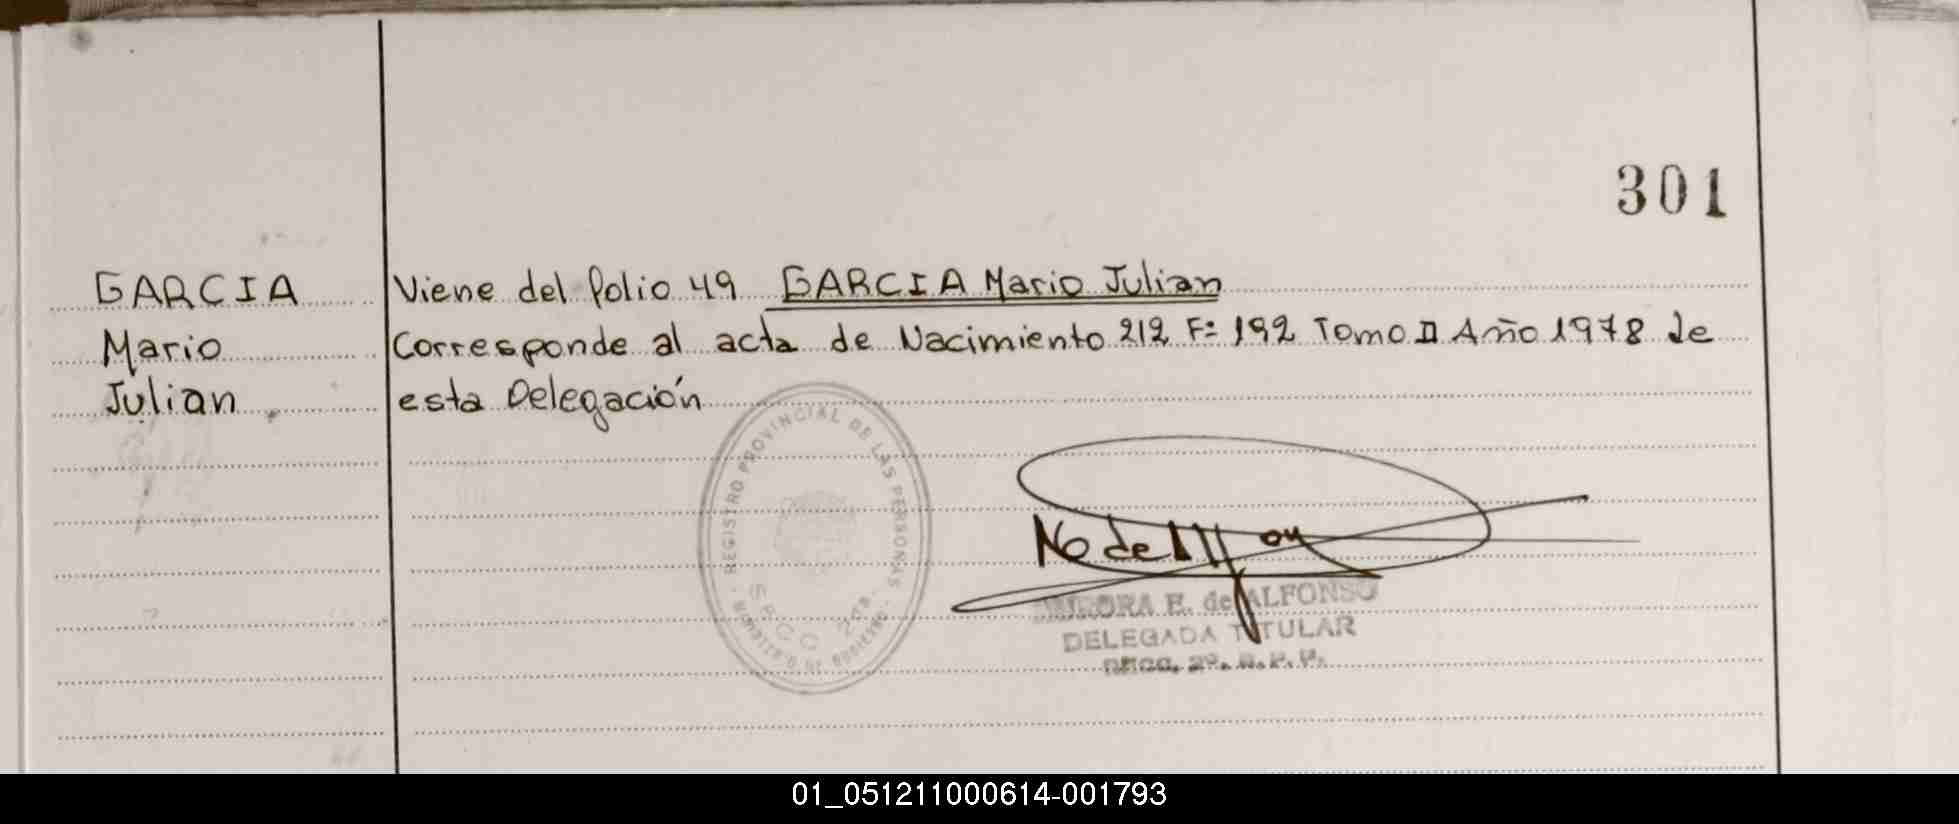 301
GARCIA
Mario
Julian
Viene del folio 49 GARCIA Mario Julian
Corresponde al acta de Nacimiento 212 Fº 192 Tomo II Año 1978 de
esta Delegación
REGISTRO PROVINCIAL DE LAS PERSONAS
SECC 2da.
AURORA E. de ALFONSO
DELEGADA TITULAR
SECC. 2º. R.P.P.
01_051211000614-001793